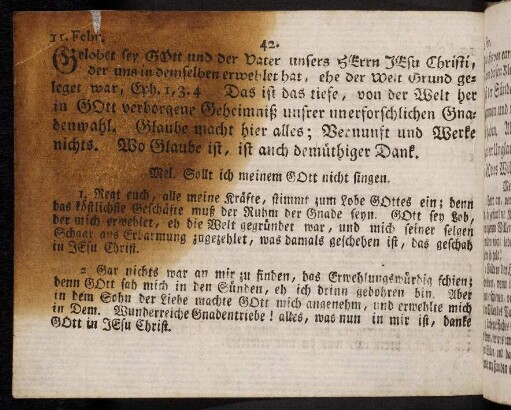 11. Febr.
42.
Gelobet sey GOtt und der Vater unsers HErrn JEsu Christi,
der uns in demselben erwehlet hat, ehe der Welt Grund ge-
leget war, Eph. 1, 3. 4 Das ist das tiefe, von der Welt her
in GOtt verborgene Geheimniß unsrer unerforschlichen Gna-
denwahl. Glaube macht hier alles; Vernunft und Werke
nichts. Wo Glaube ist, ist auch demüthiger Dank.
Mel. Sollt ich meinem GOtt nicht singen.
1. Regt euch, alle meine Kräfte, stimmt zum Lobe GOttes ein; denn
das köstlichste Geschäfte muß der Ruhm der Gnade seyn. GOtt sey Lob,
der mich erwehlet, eh die Welt gegründet war, und mich seiner selgen
Schaar aus Erbarmung zugezehlet, was damals geschehen ist, das geschah
in JEsu Christ.
2 Gar nichts war an mir zu finden, das Erwehlungswürdig schien;
denn GOtt sah mich in den Sünden, eh ich drinn gebohren bin. Aber
in dem Sohn der Liebe machte GOtt mich angenehm, und erwehlte mich
in Dem. Wunderreiche Gnadentriebe! alles, was nun in mir ist, danke
GOtt in JEsu Christ.